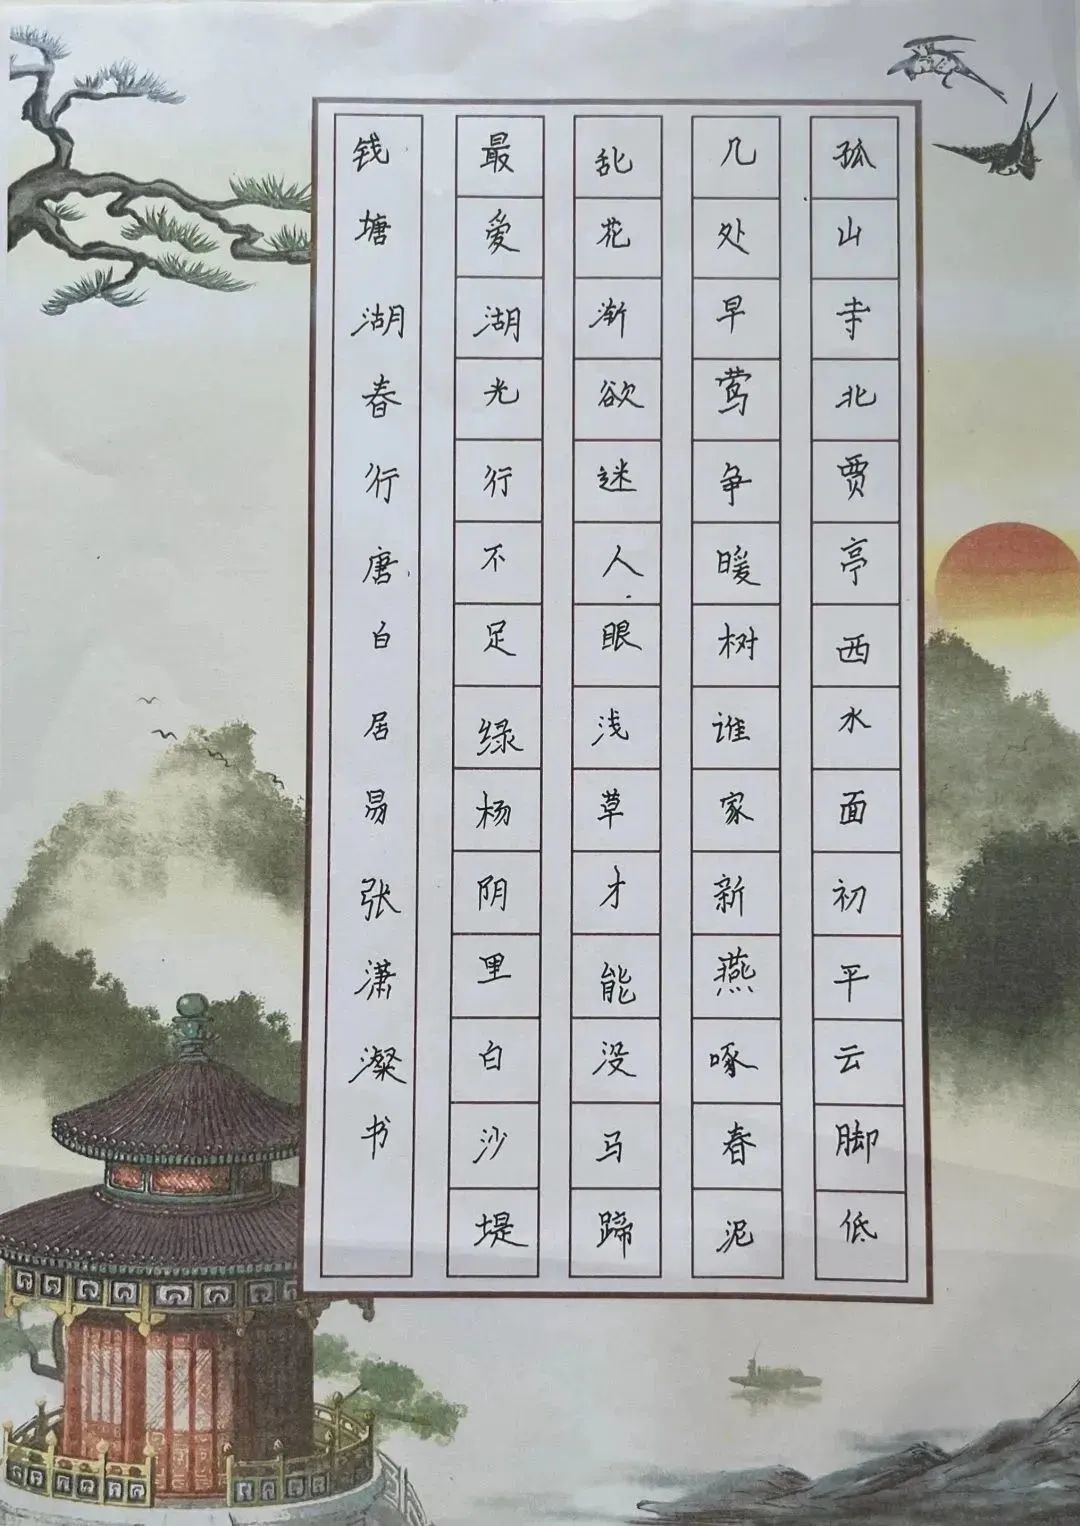 孤山寺北贾亭西水面初平云脚低
几处早莺争暖树谁家新燕啄春泥
乱花渐欲迷人眼浅草才能没马蹄
最爱湖光行不足绿杨阴里白沙堤
钱塘湖春行唐白居易张潇澯书